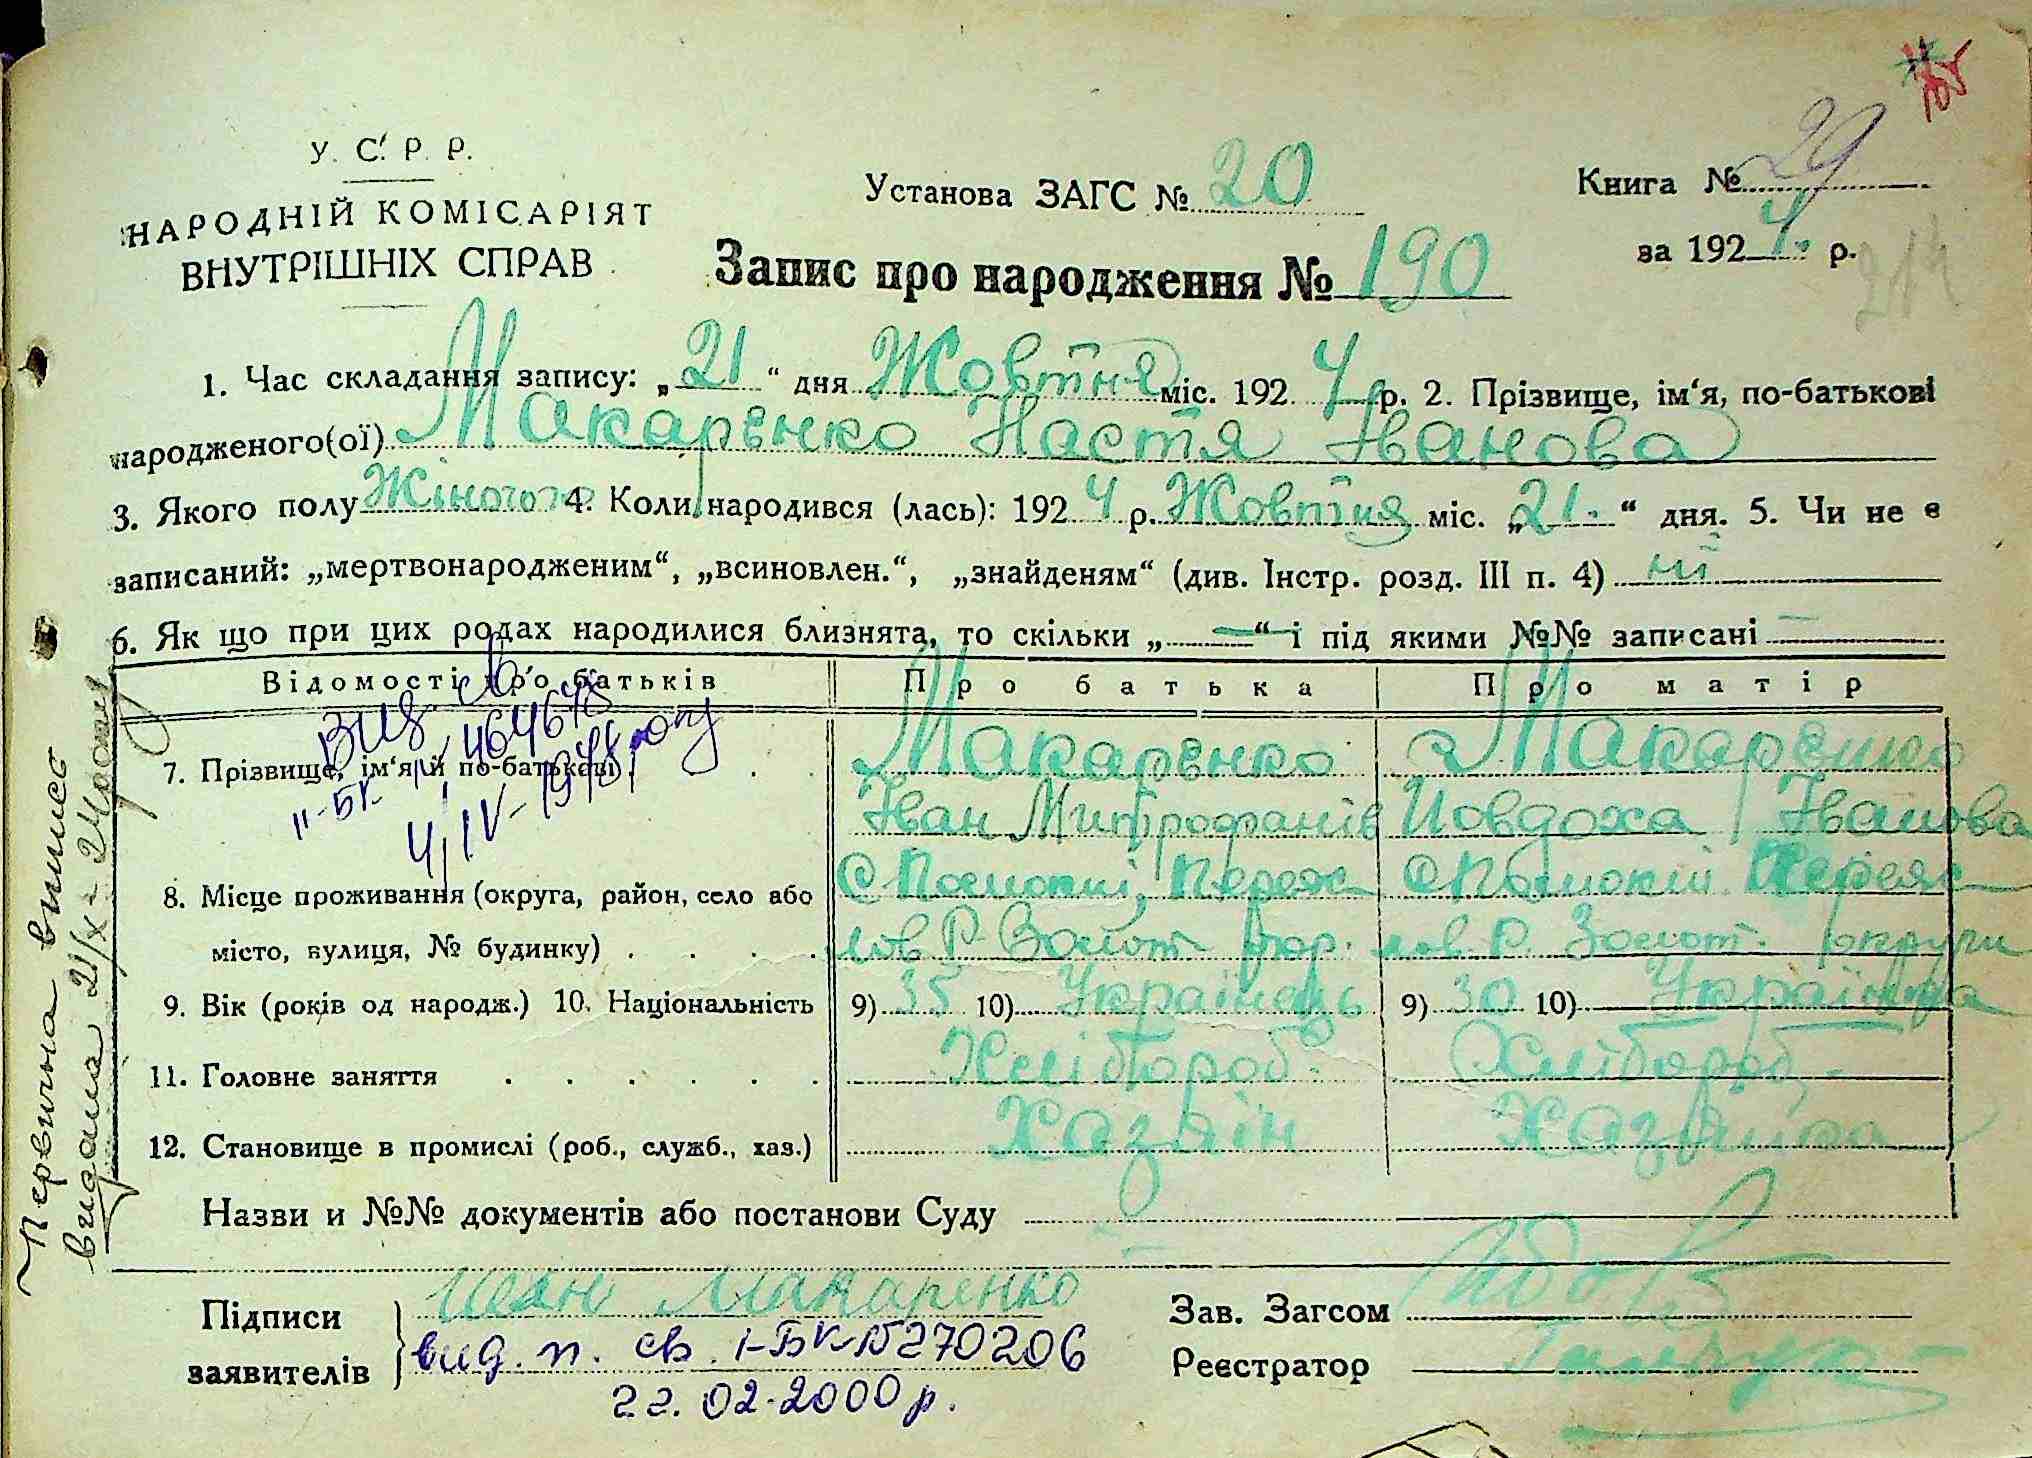 У. С. Р. Р.
НАРОДНІЙ КОМІСАРІЯТ
ВНУТРІШНІХ СПРАВ
Установа ЗАГС № 20
Книга № 29
за 1924 р.
Запис про народження № 190
1. Час складання запису: „21“ дня Жовтня міс. 1924 р. 2. Прізвище, ім‘я, по-батькові
народженого(ої) Макаренко Настя Іванова
3. Якого полу Жіночого 4. Коли народився (лась): 1924 р. Жовтня міс. „21.“ дня. 5. Чи не є
записаний: „мертвонародженим“, „всиновлен.“, „знайденям“ (див. Інстр. розд. III п. 4) ні
6. Як що при цих родах народилися близнята, то скільки „—“ і під якими №№ записані —
Відомості про батьків Про батька Про матір
7. Прізвище, ім‘я й по-батькові Макаренко Макаренко
Іван Митрофанів Йовдоха Іванова
8. Місце проживання (округа, район, село або
місто, вулиця, № будинку) лов Р. Золот. окр. лов. Р. Золот. округи
9. Вік (років од народж.) 10. Національність 9) 35 10) Українець 9) 30 10) Українка
11. Головне заняття Хлібороб Хлібороб
12. Становище в промислі (роб., служб., хаз.) Хазяін Хазяйка
Назви и №№ документів або постанови Суду
Підписи
заявителів
Иван Макаренко
вид. п. св. I-БК № 270206
22.02.2000 р.
Зав. Загсом
Реєстратор
Первична выпись
видана 21/X-24 году